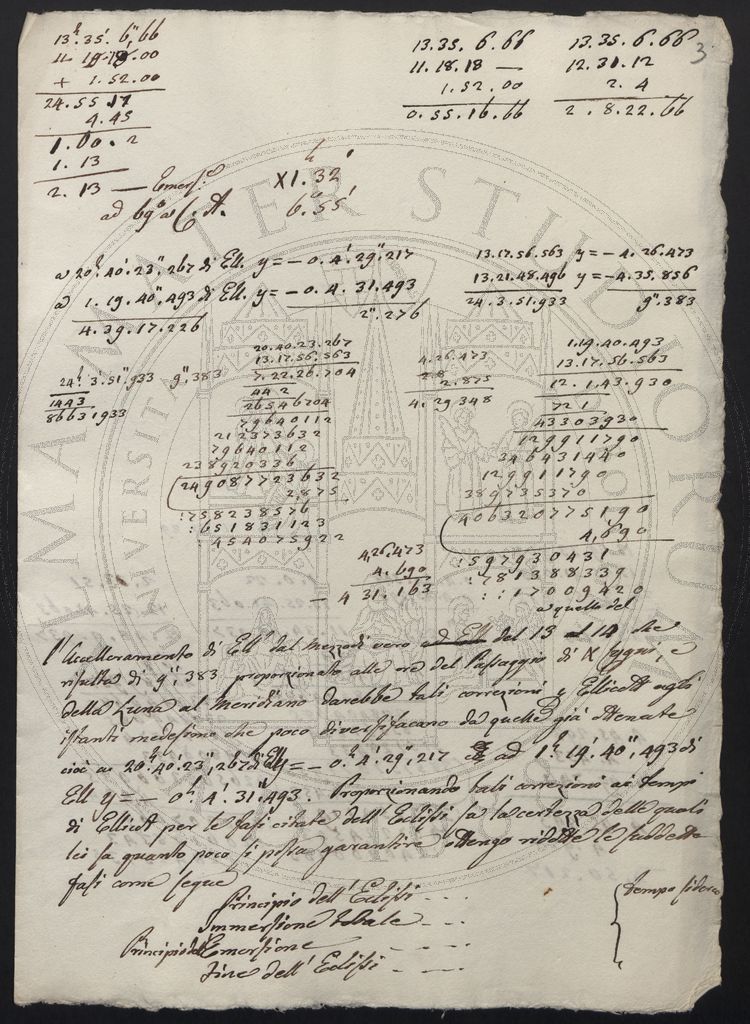 13.h 35.' 6." 66
11 18.18.00
+ 1.52.00
24.55.17
4.45
1.00.2
1.13
2.13 — Emers.e
XI.h 32'
6. 55
13.35.6.66
11.18.18 —
1.52.00
0.55.16.66
13.35.6.66
12.31.12
2.4
2.8.22.66
3
a 20h. 40.' 23", 267 di Ell. y = – 0. 4.' 29", 217
a 1. 19. 40", 493 di Ell. y = – 0. 4. 31. 493
4. 39. 17. 226
2". 276
13.17.56.563 y = – 4. 26. 473
13.21.48.496 y = – 4. 35. 856
24. 3. 51. 933
9". 383
24h. 3.' 51." 933 9." 383
1443
86631933
20.40.23.267
13.17.56.563
7.22.26.704
442
26546704
79640112
212373632
79640112
238920336
249087723632
2.875
:758238576
:651831123
:454075922
4.26.473
2.8
2.875
4. 29 348
1.19.40.493
13.17.56.563
12. 1.43.930
721
43303930
129911790
346431440
129911790
389735370
406320775190
4,690
:597930431
:781388339
::17009420
4,26.473
4.690
– 4 31.163
a quello del
l'Accelleramento di Ell.t dal mezzodì vero ad Ell del 13 al 14 che
risulta di 9", 383 proporzionato alle ore del Passaggio di X , e
della Luna al Meridiano darebbe tali correzioni a Ellicott agli
istanti medesimo che poco diversificano da quelle già ottenute
cioè a 20h. 40.' 23", 267 di Ell y = – 0h. 4.' 29", 217 ad 1h. 19.' 40", 493 di
Ell y = – 0h. 4.' 31", 493. Proporzionando tali correzioni ai tempi
di Ellicott per le fasi citate dell'Eclissi la certezza delle quali
lei sa quanto poco si possa garantire ottengo ridotte le suddette
fasi come segue
Principio dell'Eclissi . . .
Immersione totale . . . .
Principio dell'Emersione – – – –
Fine dell'Eclissi – – – –
tempo sidereo
ALMA MATER STUDIORUM
UNIVERSITÀ